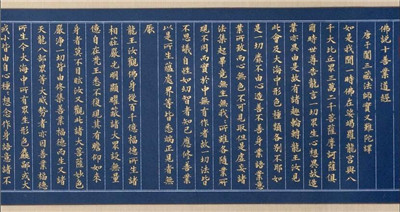 佛說十善業道經
唐于闐三藏法師實叉難陀譯
如是我聞一時佛在娑竭羅龍宮與八
千大比丘眾三萬二千菩薩摩訶薩俱
爾時世尊告龍王言一切眾生心想異故造
業亦異由是故有諸趣輪轉龍王汝見
此會及大海中形色種類各別不耶如
是一切靡不由心造善不善身業語業意
業所致而心無色不可見取但是虛妄諸
法集起畢竟無主無我我所雖各隨業所
現不同而實於中無有作者故一切法皆
不思議自性如幻智者知已應修善業
以是所生蘊處界等皆悉端正見者無
厭
龍王汝觀佛身從百千億福德所生諸
相莊嚴光明顯曜蔽諸大眾設無量
億自在梵王悉不復現其有瞻仰如來
身者豈不目眩汝又觀此諸大菩薩妙色
嚴淨一切皆由修集善業福德而生又諸
天龍八部眾等大威勢者亦因善業福德
所生今大海中所有眾生形色麤鄙或大
或小皆由自心種種想念作身語意諸不